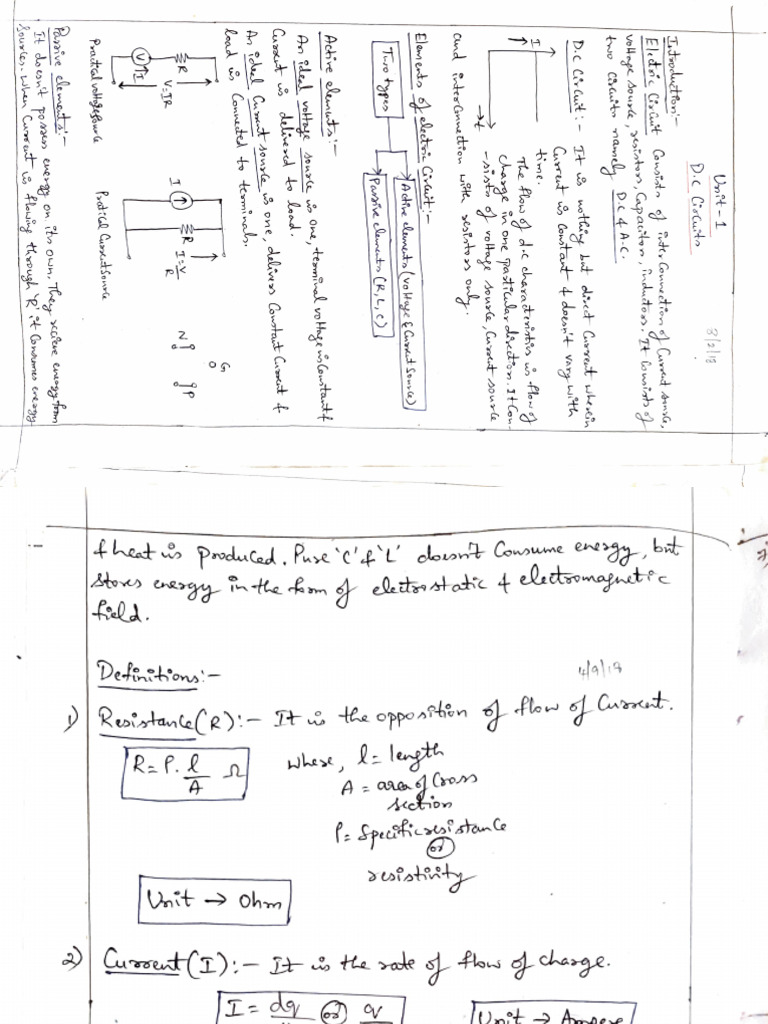 Unit-1
3/2/18
D.C Circuits
Introduction:-
Electric Circuit Consists of inter Connection of Current source,
voltage source, resistors, Capacitors, inductors. It Consists of
two circuits namely D.C & A.C.
D.C Circuit:- It is nothing but direct Current wherein
Current is Constant & doesn't vary with
time.
I
t
The flow of d.c characteristics is flow of
charge in one particular direction. It Con-
-sists of voltage source, Current source
and interconnection with resistors only.
Elements of electric Circuit:-
Two types
Active elements (voltage & Current Source)
Passive elements (R, L, C)
Active elements:-
An ideal voltage source is one, terminal voltage is Constant &
Current is delivered to load.
An ideal Current source is one, delivers Constant Current &
load is Connected to terminals.
R
V
I
V=IR
Practical voltage source
I
R
I=V/R
Pratical Current Source
G
N
P
Passive elements:-
It doesn't posses energy on its own. They recieve energy from
sources. When Current is flowing through 'R' it Consumes energy
& heat is produced. Pure 'C' & 'L' doesn't Consume energy, but
stores energy in the form of electrostatic & electromagnetic
field.
Definitions:-
4/9/18
1) Resistance (R):- It is the opposition of flow of Current.
R = ρ. l/A Ω
where, l = length
A = area of Cross
section
ρ = Specific resistance
or
resistivity
Unit → Ohm
2) Current (I):- It is the rate of flow of charge.
I = dq or q
Unit → Ampere